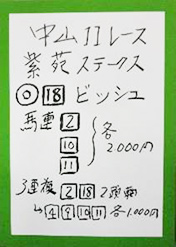 中山11レース
紫苑ステークス
◎ 18 ビッシュ
馬連 2
10 各
11 2.000円
3連複 2 18 2頭軸
→ 4 9 10 11 各1.000円